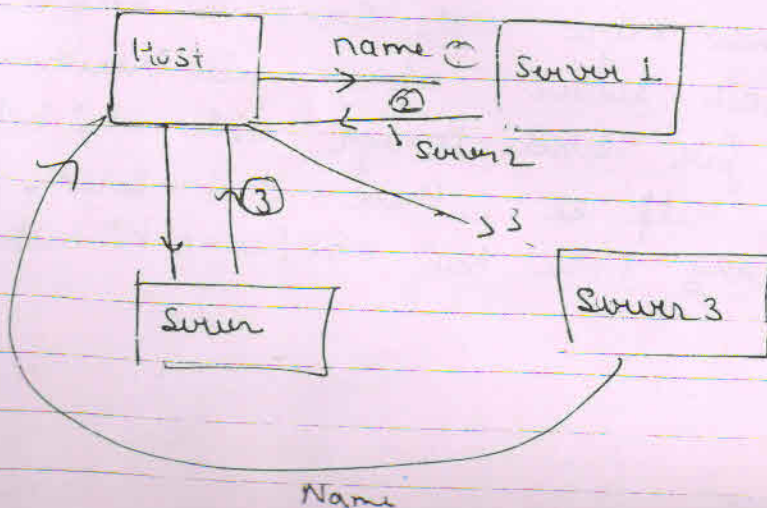 Host
name ①
Server 1
②
Server 2
③
> 3
Server
Server 3
Name